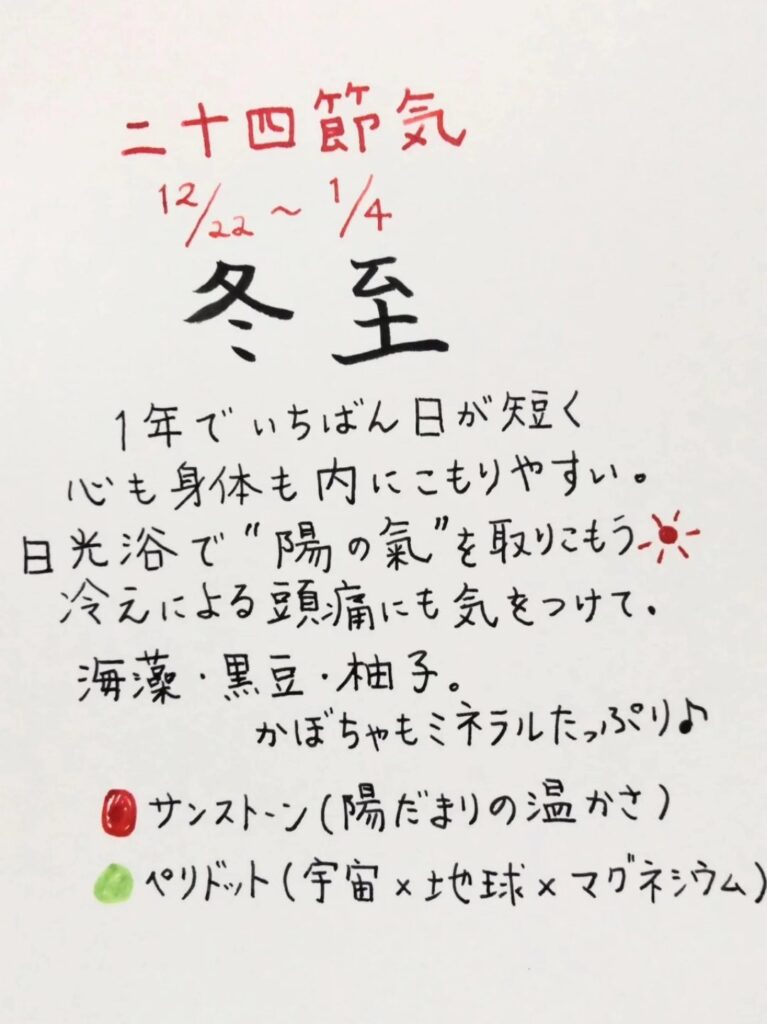 二十四節気
12/22〜1/4
冬至
1年でいちばん日が短く
心も身体も内にこもりやすい。
日光浴で"陽の氣"を取りこもう
冷えによる頭痛にも気をつけて。
海藻・黒豆・柚子。
かぼちゃもミネラルたっぷり♪
サンストーン(陽だまりの温かさ)
ペリドット(宇宙×地球×マグネシウム)